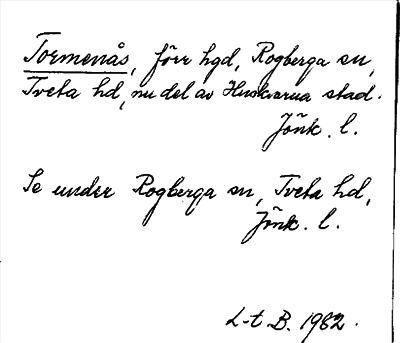 Tormenås, förr hgd, Rogberga sn,
Tveta hd, nu del av Huskvarna stad.
Jönk. l.
Se under Rogberga sn, Tveta hd,
Jönk. l.
L-t B. 1982.